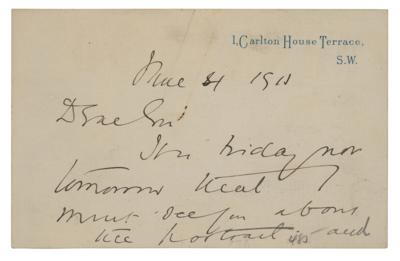 1, Carlton House Terrace,
S.W.
June 21 1911
Dear Sir
It is Friday not
tomorrow that I
must see you about
the portrait and